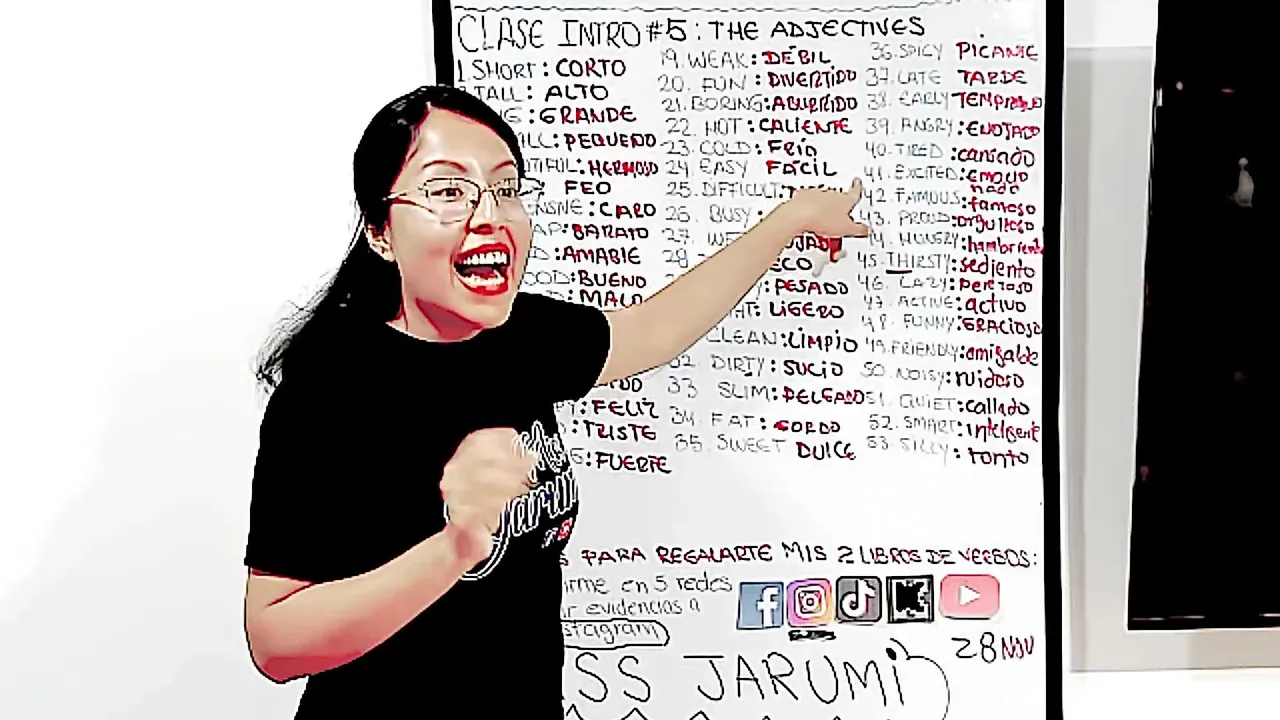 CLASE INTRO #5: THE ADJECTIVES
1. SHORT: CORTO
TALL: ALTO
: GRANDE
: PEQUEÑO
: HERMOSO
FEO
: CARO
: BARATO
: AMABLE
: BUENO
: MALO
: FELIZ
: TRISTE
: FUERTE
19. WEAK: DÉBIL
20. FUN: DIVERTIDO
21. BORING: ABURRIDO
22. HOT: CALIENTE
23. COLD: FRÍO
24. EASY FÁCIL
25. DIFFICULT:
26. BUSY:
27.
28
: PESADO
: LIGERO
CLEAN: LIMPIO
32. DIRTY: SUCIO
33 SLIM: DELGADO
34. FAT: GORDO
35. SWEET DULCE
36. SPICY PICANTE
37. LATE TARDE
38. EARLY TEMPRANO
39. ANGRY: ENOJADO
40. TIRED: cansado
41. EXCITED: emocio
nado
42. FAMOUS: famoso
43. PROUD: orgulloso
44. HUNGRY: hambriento
45. THIRSTY: sediento
46. LAZY: perezoso
47. ACTIVE: activo
48. FUNNY: GRACIOSO
49. FRIENDLY: amigable
50. NOISY: ruidoso
51. QUIET: callado
52. SMART: inteligente
53. SILLY: tonto
PARA REGALARTE MIS 2 LIBROS DE VERBOS:
en 5 redes
evidencias a
28 NOV
JARUMI